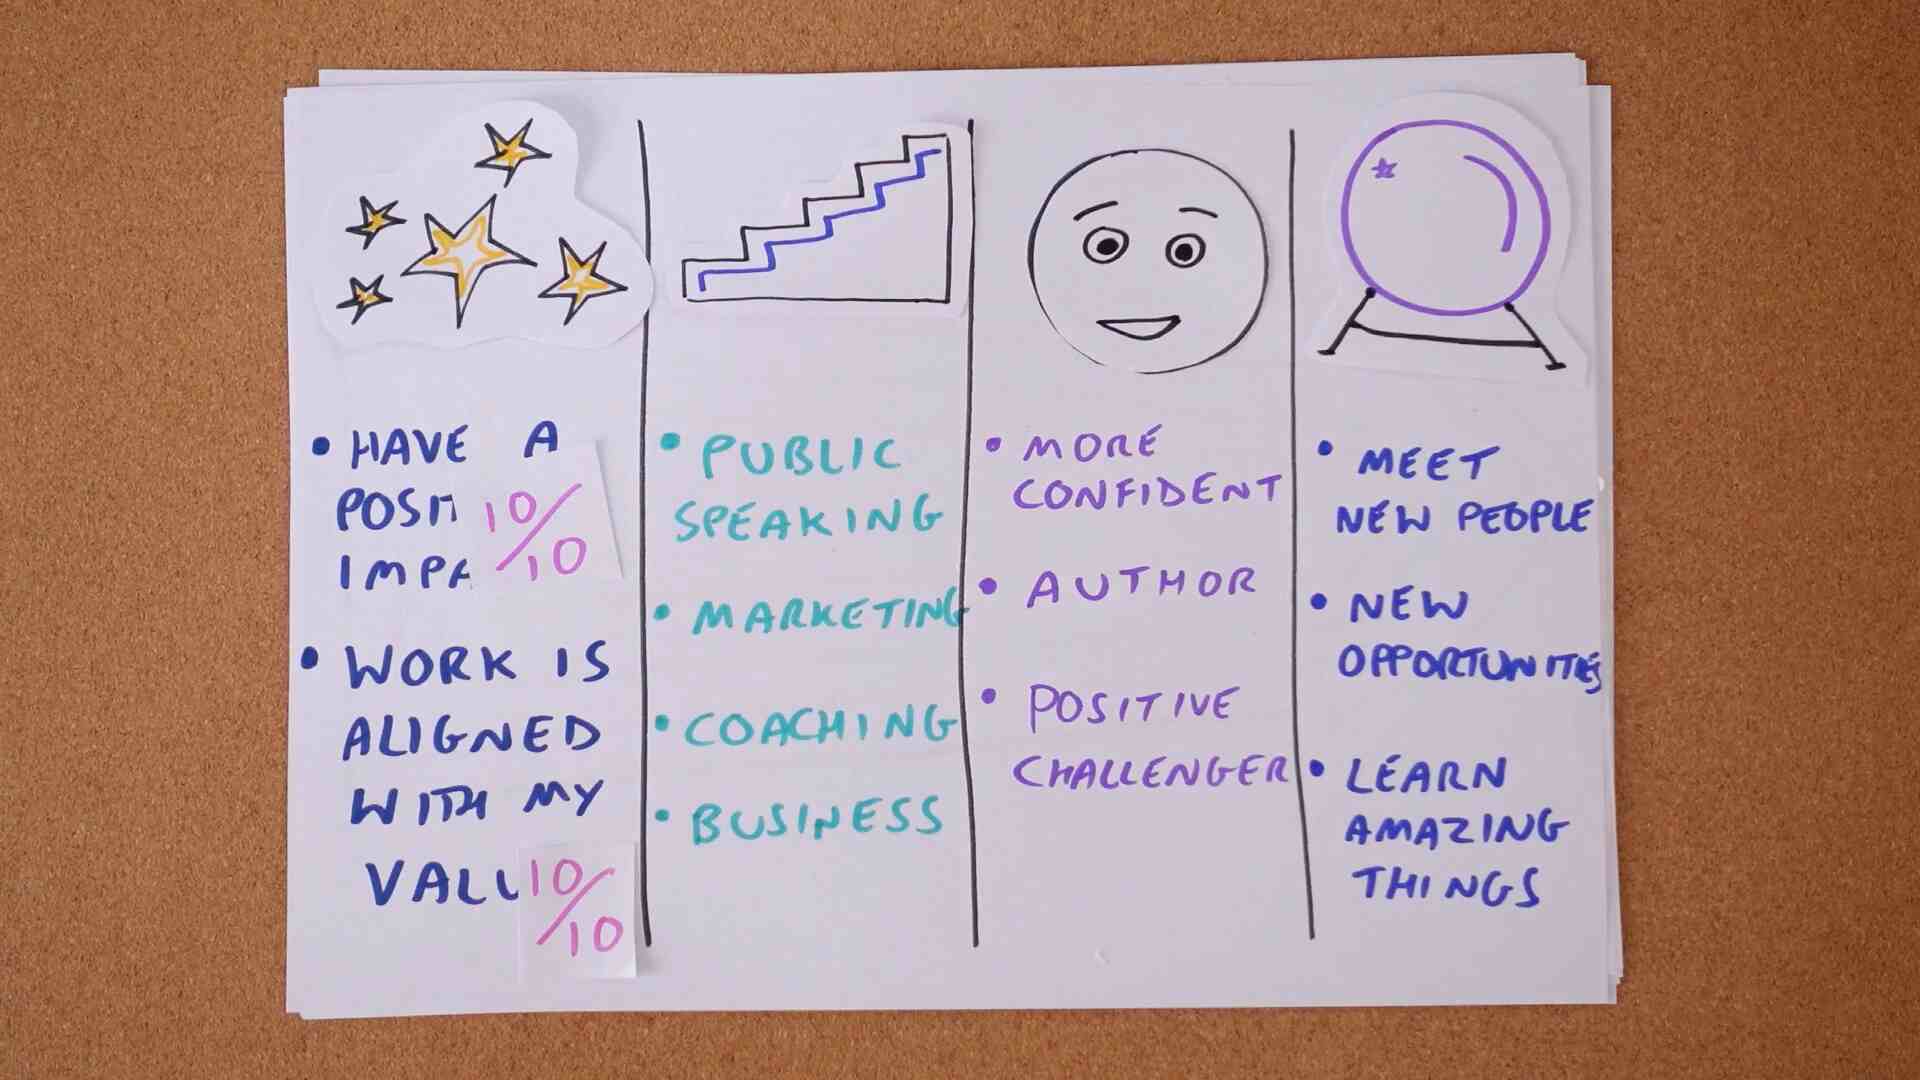 • HAVE A
POSIT 10/10
IMPA
• WORK IS
ALIGNED
WITH MY
VALU 10/10
• PUBLIC
SPEAKING
• MARKETING
• COACHING
• BUSINESS
• MORE
CONFIDENT
• AUTHOR
• POSITIVE
CHALLENGER
• MEET
NEW PEOPLE
• NEW
OPPORTUNITIES
• LEARN
AMAZING
THINGS